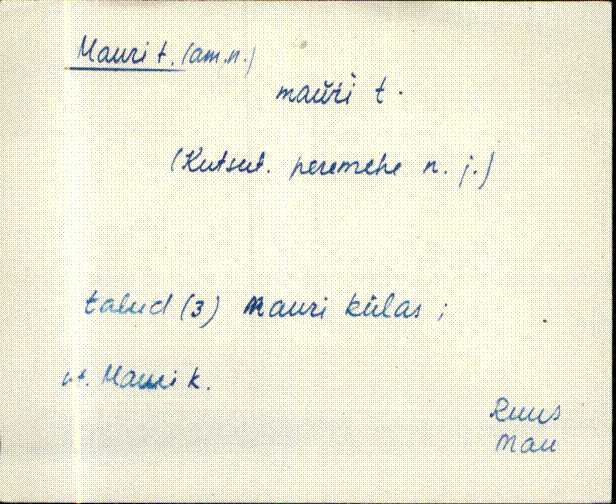 Mauri t. (am.n.)
maŭŕi t.
(Kutsut. peremehe n. j.)
talud (3) Mauri külas ;
vt. Mauri k.
Ruus
Mau